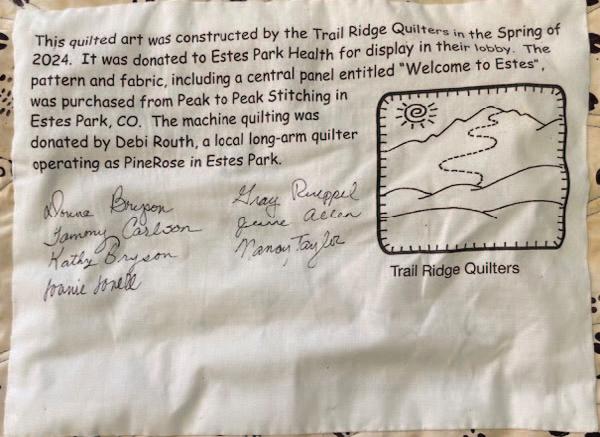 This quilted art was constructed by the Trail Ridge Quilters in the Spring of
2024. It was donated to Estes Park Health for display in their lobby. The
pattern and fabric, including a central panel entitled "Welcome to Estes",
was purchased from Peak to Peak Stitching in
Estes Park, CO. The machine quilting was
donated by Debi Routh, a local long-arm quilter
operating as PineRose in Estes Park.
Donna Bryson
Tammy Carlson
Kathy Bryson
Joanie
Rueppel
Allen
Nancy Taylor
Trail Ridge Quilters